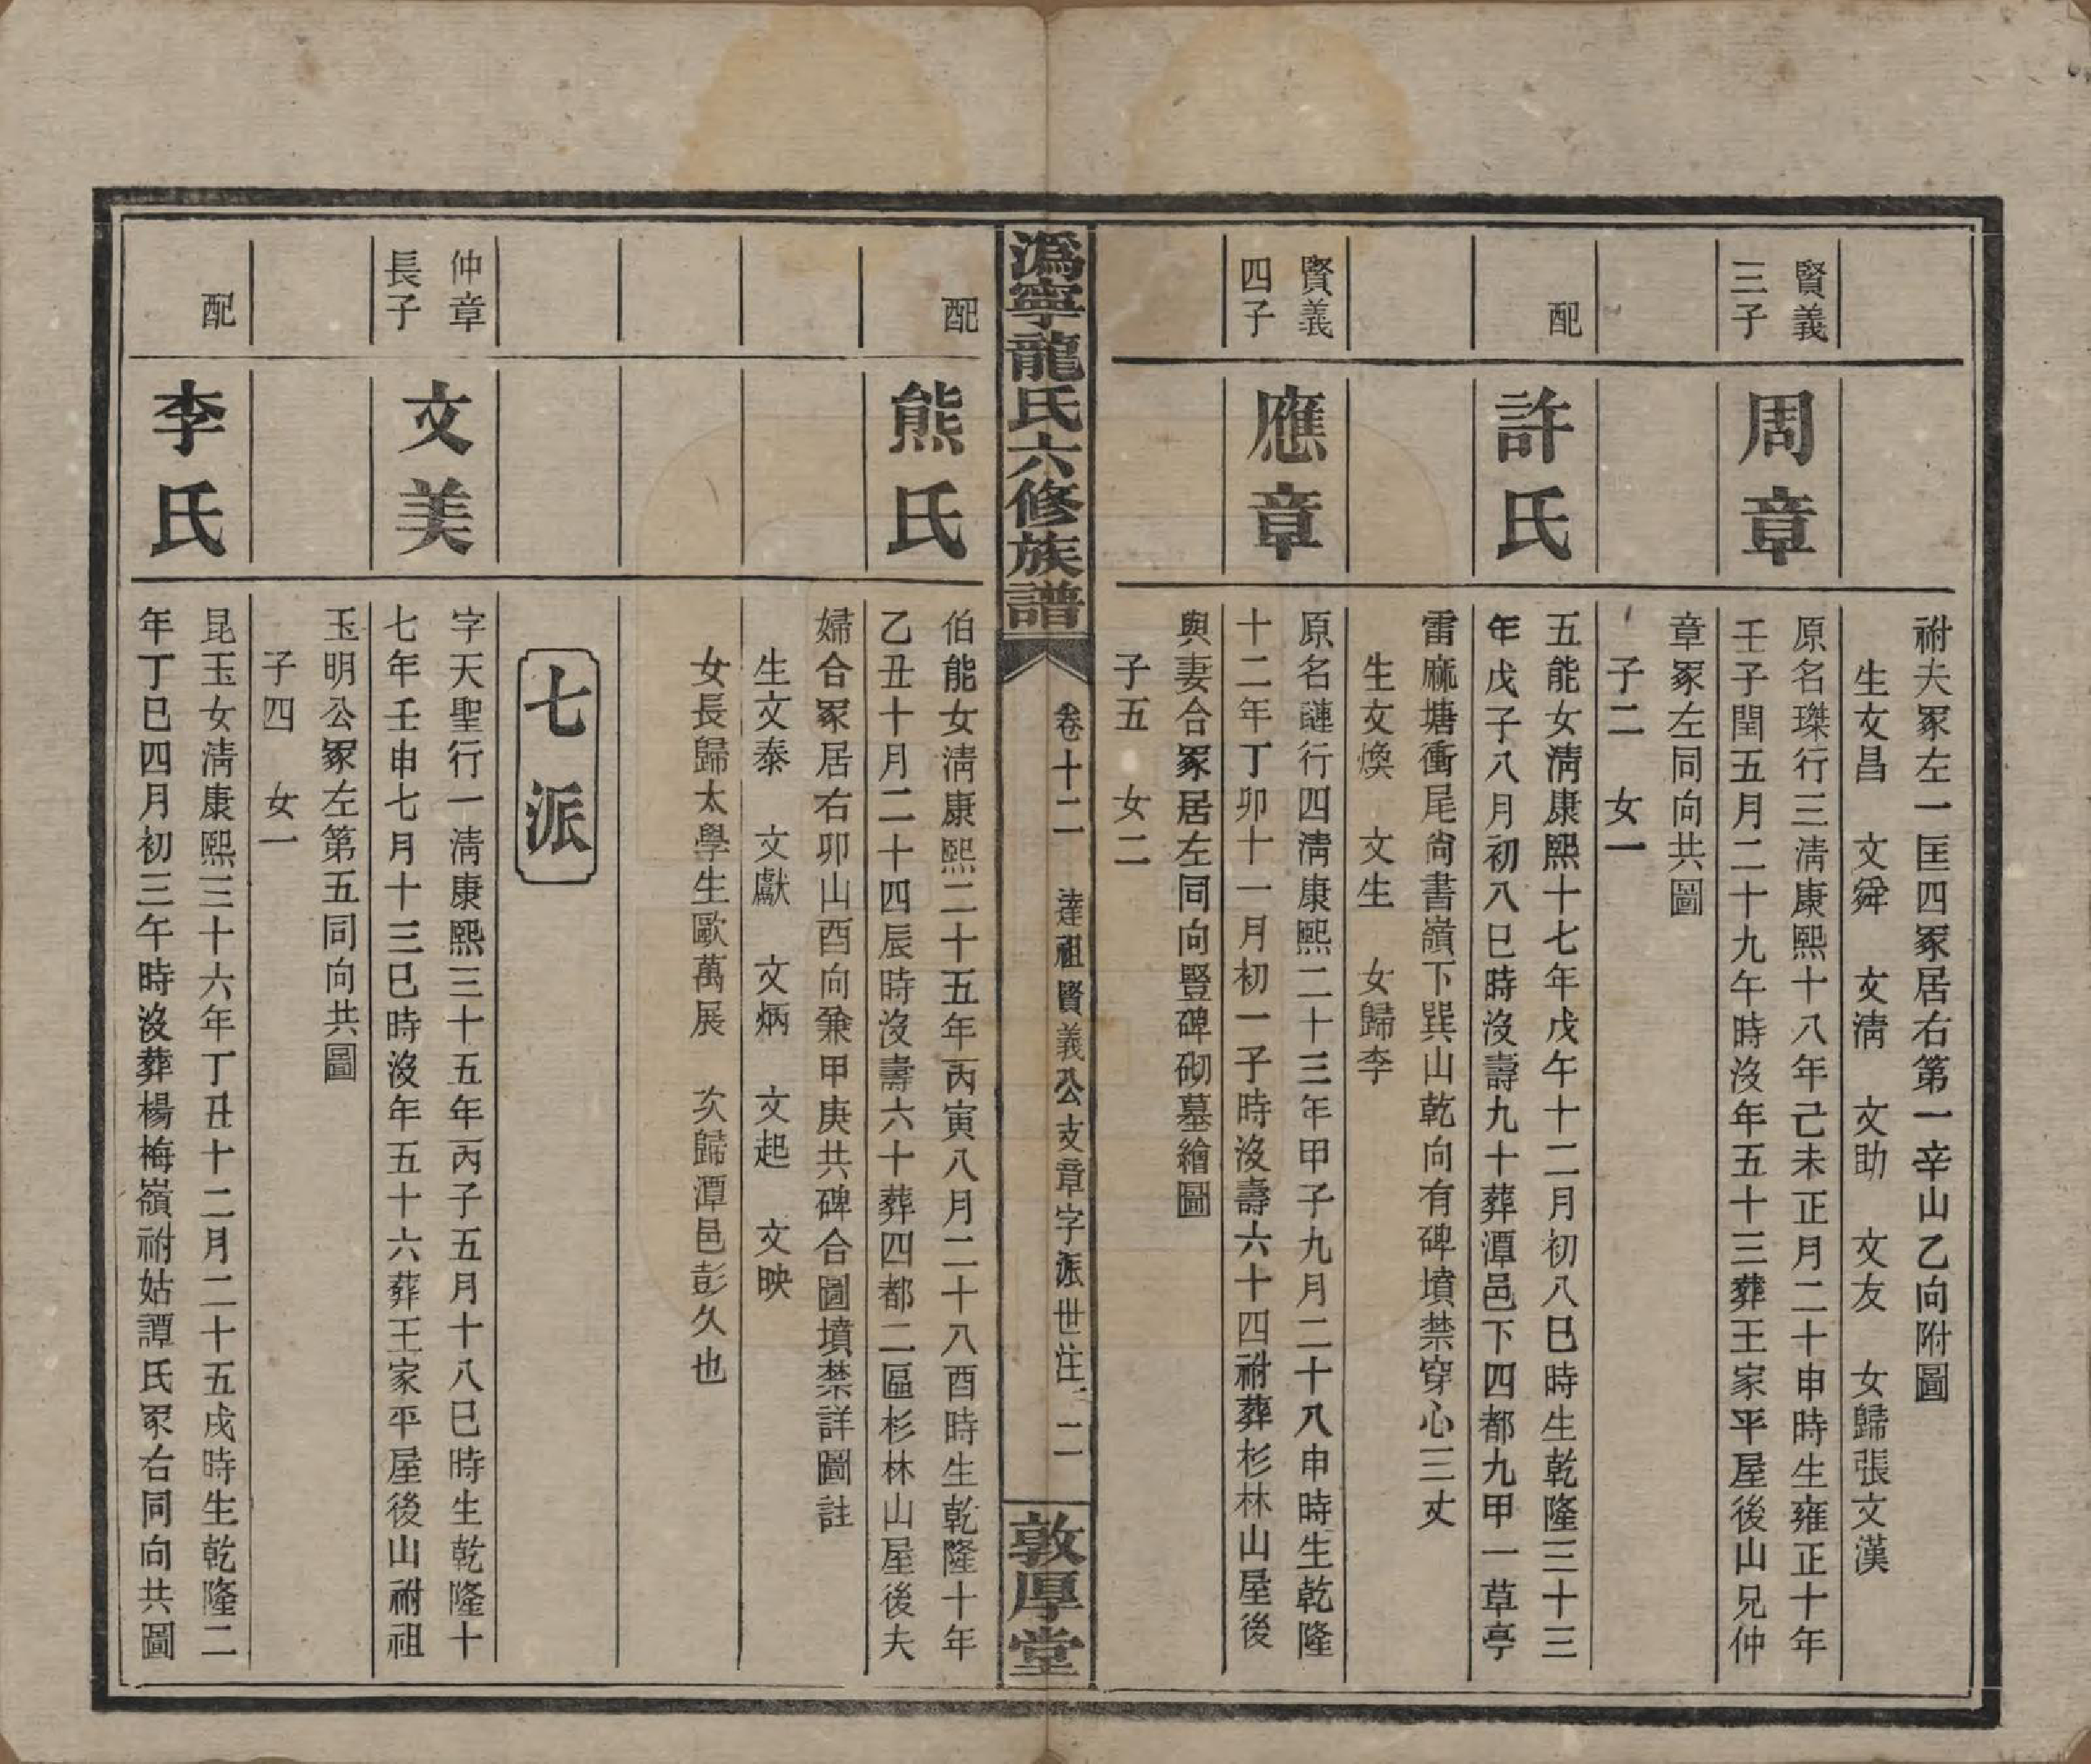 祔夫冢左一匡四冢居右第一辛山乙向附圖
生文昌 文舜 文淸 文助 文友 女歸張文漢
賢義
三子
周章
原名璨行三淸康熙十八年己未正月二十申時生雍正十年
壬子閏五月二十九午時沒年五十三葬王家平屋後山兄仲
章冢左同向共圖
子二 女一
配
許氏
五能女淸康熙十七年戊午十二月初八巳時生乾隆三十三
年戊子八月初八巳時沒壽九十葬潭邑下四都九甲一草亭
雷蔴塘衝尾尙書嶺下巽山乾向有碑墳禁穿心三丈
生文煥 文生 女歸李
賢義
四子
應章
原名璉行四淸康熙二十三年甲子九月二十八申時生乾隆
十二年丁卯十一月初一子時沒壽六十四祔葬杉林山屋後
與妻合冢居左同向豎碑砌墓繪圖
子五 女二
潙寧龍氏六修族譜
卷十二 達祖賢義公支章字派世注 二
敦厚堂
配
熊氏
伯能女淸康熙二十五年丙寅八月二十八酉時生乾隆十年
乙丑十月二十四辰時沒壽六十葬四都二區杉林山屋後夫
婦合冢居右卯山酉向兼甲庚共碑合圖墳禁詳圖註
生文泰 文獻 文炳 文起 文映
女長歸太學生歐萬展 次歸潭邑彭久也
七派
仲章
長子
文美
字天聖行一淸康熙三十五年丙子五月十八巳時生乾隆十
七年壬申七月十三巳時沒年五十六葬王家平屋後山祔祖
玉明公冢左第五同向共圖
子四 女一
配
李氏
昆玉女淸康熙三十六年丁丑十二月二十五戌時生乾隆二
年丁巳四月初三午時沒葬楊梅嶺祔姑譚氏冢右同向共圖